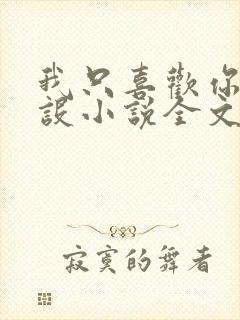 我只喜歡你
設小說全文
寂寞的舞者